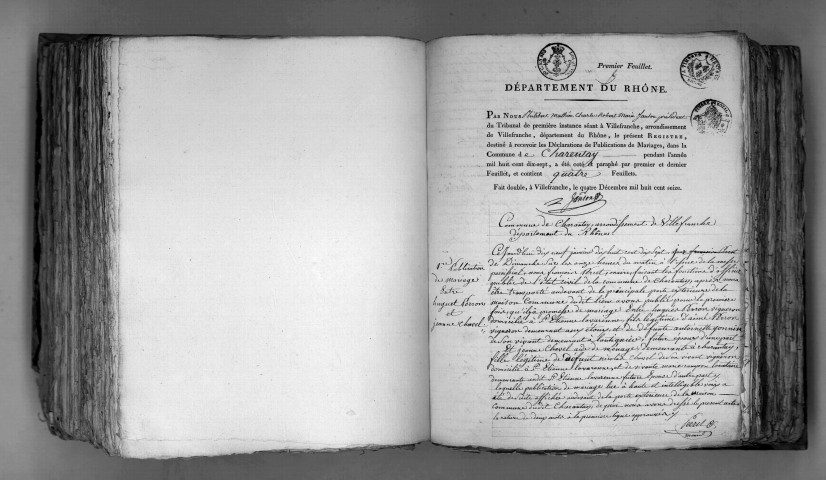 Premier Feuillet.
DÉPARTEMENT DU RHÔNE.
Par Nous
du Tribunal de première instance séant à Villefranche, arrondissement
de Villefranche, département du Rhône, le présent Registre,
destiné à recevoir les Déclarations de Publications de Mariages, dans la
Commune de Charentay pendant l'année
mil huit cent dix-sept, a été coté & paraphé par premier et dernier
Feuillet, et contient quatre Feuillets.
Fait double, à Villefranche, le quatre Décembre mil huit cent seize.
Commune de Charentay arrondissement de Villefranche
département du Rhône
1re Publication
de mariage
entre
et
jeanne chavel
Cejourd'hui dix neuf janvier dix huit cent dix sept
de Dimanche sur les onze heures du matin à l'issue de la messe
paroissial, maire faisant les fonctions d'officier
public de l'état civil de la commune de Charentay, après nous
être transporté audevant de la principale porte extérieure de la
maison Commune dudit lieu avons publié pour la première
fois qu'il y a promesse de mariage Entre vigneron
domicilié à St Etienne lavarenne, fils légitime d'aimé
vigneron demeurant et de défunte antoinette
de son vivant demeurant à futur époux d'une part
Et jeanne Chavel demeurante à charentay
fille légitime de défunt nicolas Chavel de son vivant vigneron
domicilié à St Etienne lavarenne, et de vivante
demeurante audit St Etienne lavarenne future Epouse d'autre part
laquelle publication de mariage lue à haute et intelligible voix a
été de suite affichée audevant de la porte extérieure de la maison
commune dudit Charentay de quoi nous avons dressé le présent acte
la rature de deux mots à la première ligne approuvée